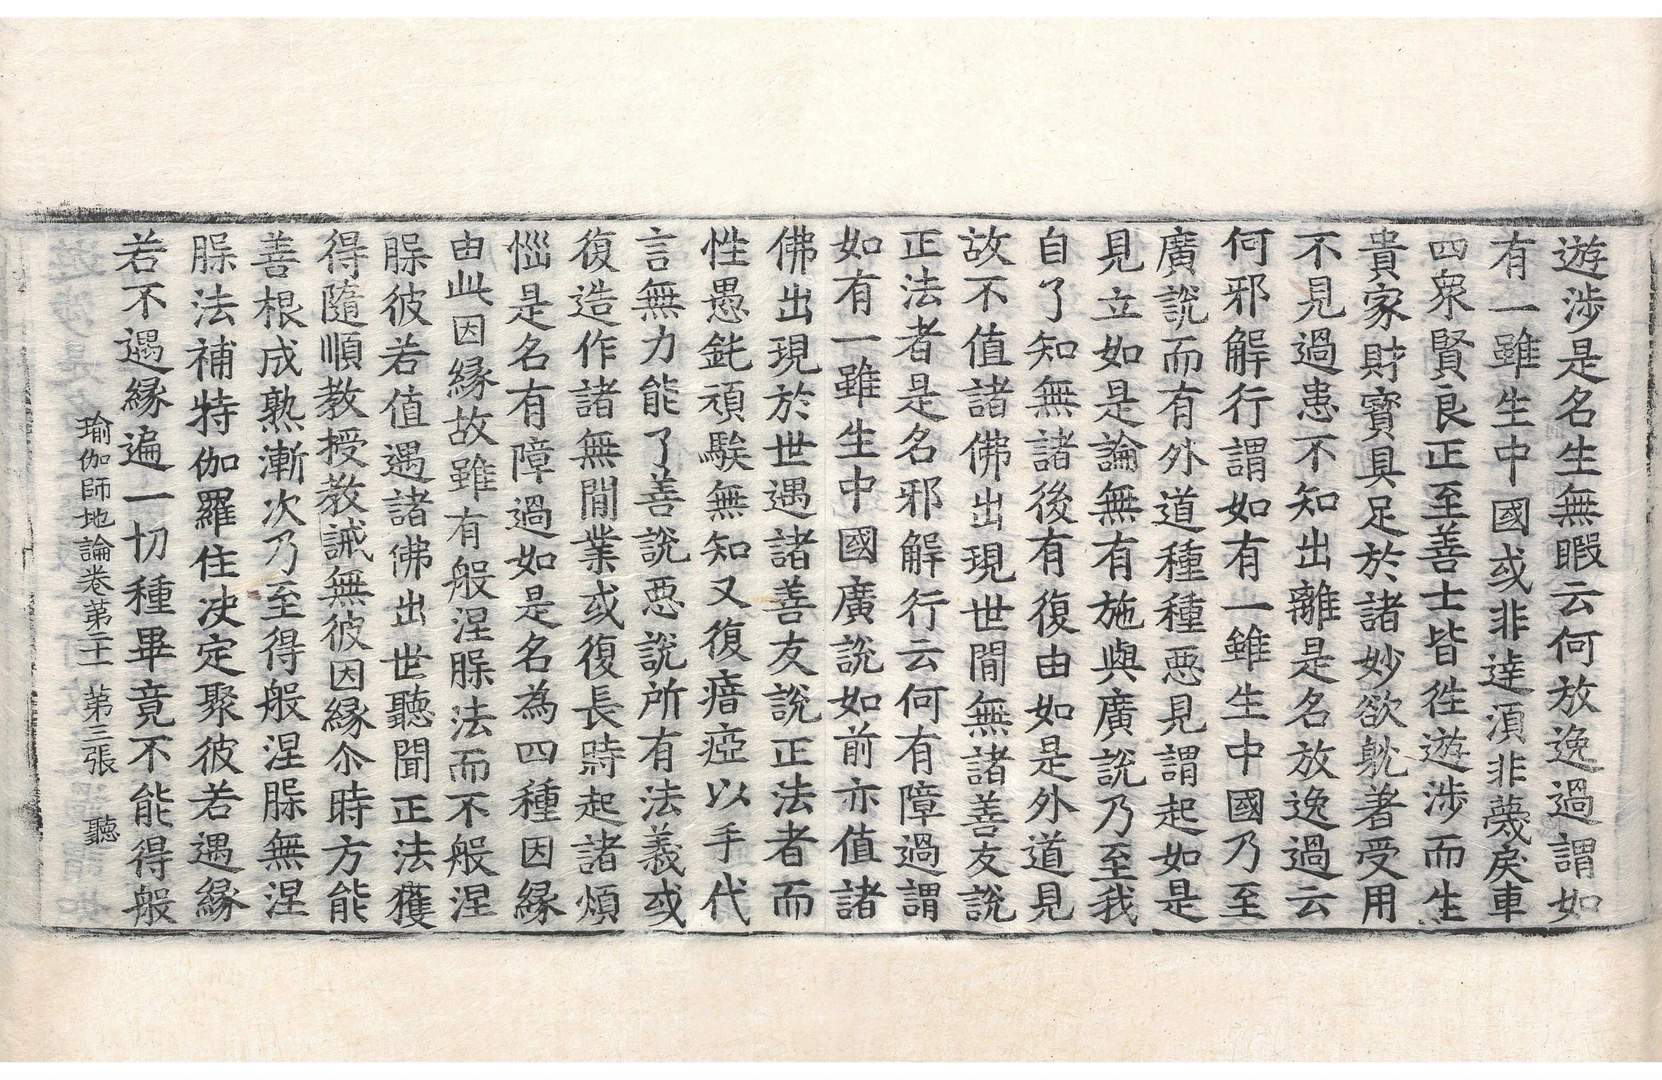 遊涉是名生無暇云何放逸過謂如
有一雖生中國或非達須非蔑戾車
四衆賢良正至善士皆徃遊涉而生
貴家財寶具足於諸妙欲躭著受用
不見過患不知出離是名放逸過云
何邪解行謂如有一雖生中國乃至
廣說而有外道種種惡見謂起如是
見立如是論無有施與廣說乃至我
自了知無諸後有復由如是外道見
故不值諸佛出現世閒無諸善友說
正法者是名邪解行云何有障過謂
如有一雖生中國廣說如前亦值諸
佛出現於世遇諸善友說正法者而
性愚鈍頑騃無知又復瘖瘂以手代
言無力能了善說惡說所有法義或
復造作諸無閒業或復長時起諸煩
惱是名有障過如是名為四種因縁
由此因縁故雖有般涅槃法而不般涅
槃彼若值遇諸佛出世聽聞正法獲
得隨順教授教誡無彼因縁尒時方能
善根成熟漸次乃至得般涅槃無涅
槃法補特伽羅住决定聚彼若遇縁
若不遇縁遍一切種畢竟不能得般
瑜伽師地論卷第二十一　第三張　聽